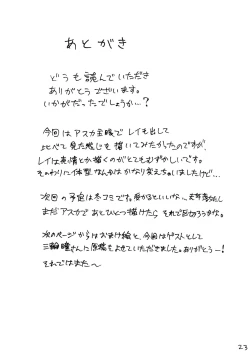 あとがき
どうも読んでいただき
ありがとうございます。
いかがだったでしょうか…?
今回はアスカ主眼でレイも出して
比べて見た感じも描いてみたかったのですが、
レイは表情とか描くのがとてもむずかしいです。
そのわりに体型なんかはかなり変えちゃいましたけど…
次回の予定は冬コミです。受かるといいな、去年落ちたし
まだアスカであとひとつ描けたら それで区切ろうかな。
次のページからはおまけ絵と、今回はゲストとして
三輪瞳さんに原稿をよせていただきました。ありがとうー!
それではまた〜
23